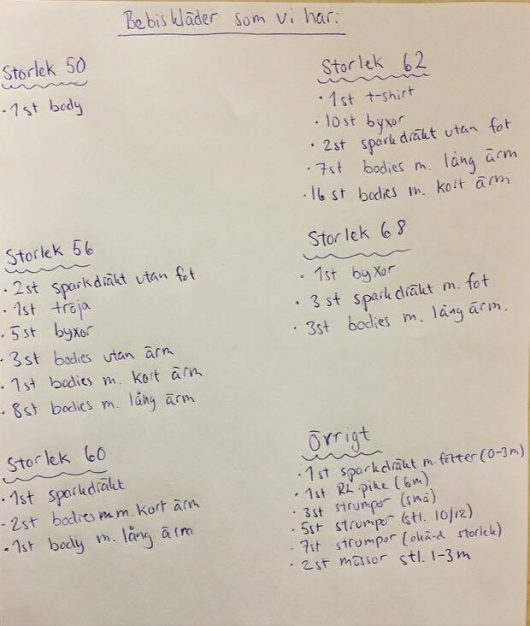 Bebiskläder som vi har:
Storlek 50
· 1st body
Storlek 56
· 2st sparkdräkt utan fot
· 1st tröja
· 5st byxor
· 3st bodies utan ärm
· 1st bodies m. kort ärm
· 8st bodies m. lång ärm
Storlek 60
· 1st sparkdräkt
· 2st bodies m. kort ärm
· 1st body m. lång ärm
Storlek 62
· 1st t-shirt
· 10st byxor
· 2st sparkdräkt utan fot
· 7st bodies m. lång ärm
· 16st bodies m. kort ärm
Storlek 68
· 1st byxor
· 3st sparkdräkt m. fot
· 3st bodies m. lång ärm.
Övrigt
· 1st sparkdräkt m. fötter (0-3m)
· 1st RL pike (6m)
· 3st strumpor (små)
· 5st strumpor (stl. 10/12)
· 7st strumpor (okänd storlek)
· 2st mössor stl. 1-3m